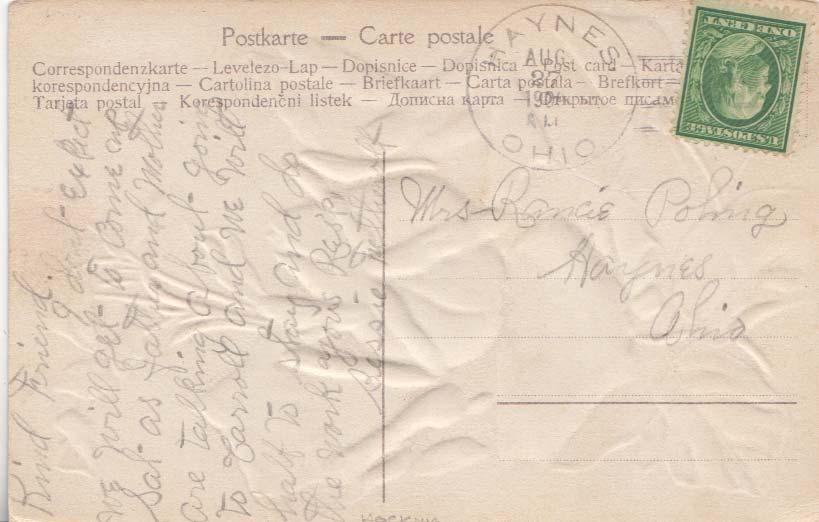 Postkarte — Carte postale
Correspondenzkarte — Levelezo-Lap — Dopisnice — Dopisnica — Post card — Karta
korespondencyjna — Cartolina postale — Briefkaart — Carta postala — Brefkort —
Tarjeta postal — Korespondenčni listek — Дописна карта — Открытое письмо
HAYNES
AUG
27
OHIO
ONE CENT
U.S. POSTAGE
Mrs Rancie Poling
Haynes
Ohio
Kind Friend.
I dont Expect
we will get to come out
Sat as Father and Mother
are talking about going
to Carroll and we will
half to stay and do
the work yours Resp.